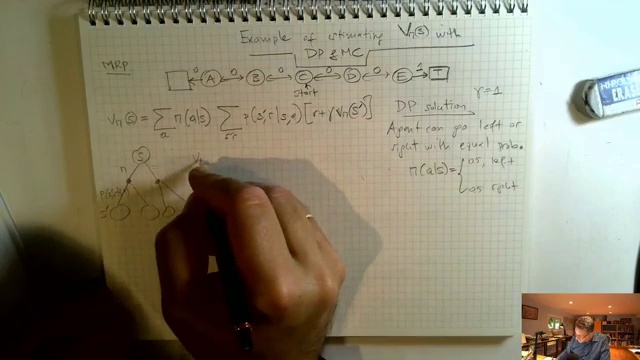 Example of estimating Vπ(s) with
DP & MC
MRP
0 A 0 B 0 C 0 D 0 E 1 T
Start
Vπ(s) = Σa π(a|s) Σs',r p(s',r|s,a) [r+γ Vπ(s')]
DP solution γ=1
Agent can go left or
right with equal prob.
π(a|s) = { 0.5, left
0.5 right
S
π
s'
V
ERAS